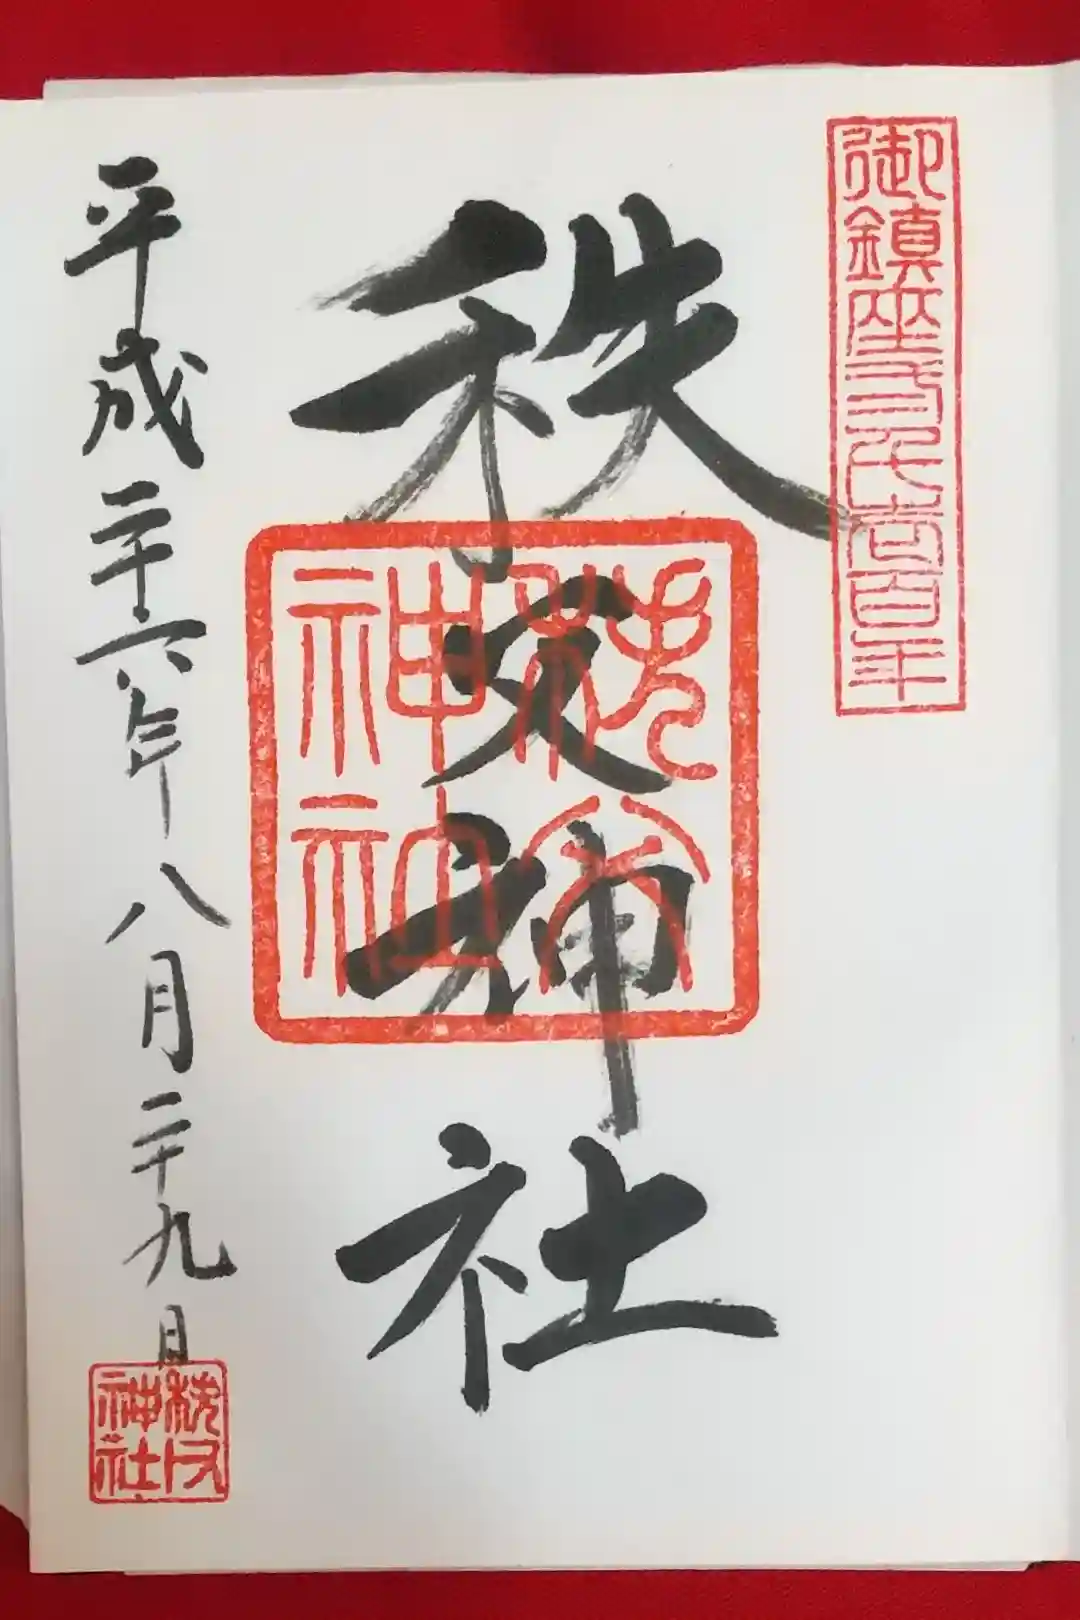 御鎮座弐千壱百年
秩父神社
秩父神社
平成二十六年八月二十九日
秩父神社